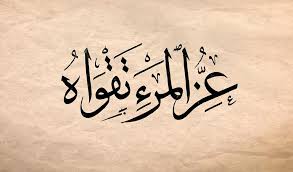 عِزُّ المَرْءِ تَقْوَاهُ